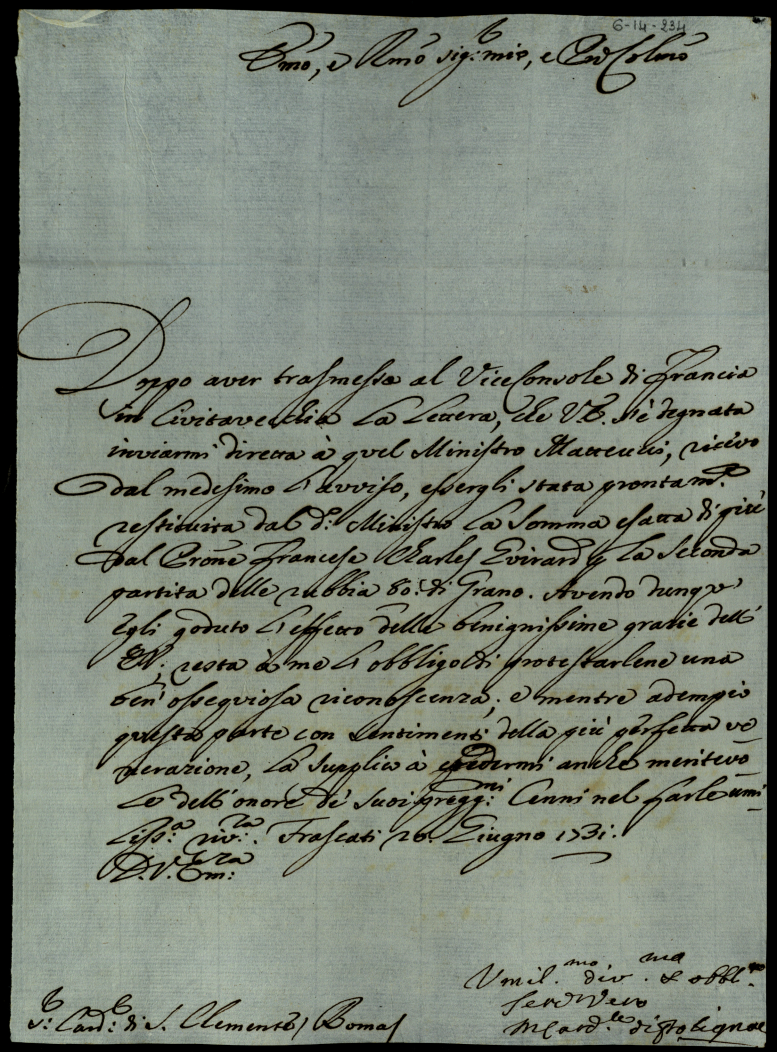 6-14-234
Em̃o, e Rm̃o sig:r mio, e Pron Colmõ
Doppo aver trasmessa al ViceConsole di Francia
in Civitavechia la Lettera, che V.E. s'è degnata
inviarmi diretta à quel Ministro Matteucci, ricevo
dal medesimo l'avviso, essergli stata prontam.e
restituita dal d:o Ministro la somma esatta di più
dal Prone Francese Charles Evirard p la seconda
partita delle rubbia 60: di Grano. Avendo dunq;
Egli goduto l'effetto delle benignissime grazie dell'
E.V., resta à me l'obbligo di protestarlene una
ben' ossequiosa riconoscenza; e mentre adempio
questa parte con sentimenti della più perfetta ve-
nerazione, la supplico à credermi anche meritevo-
le dell'onore de' suoi pregg:mi Cenni nel farle umi-
liss:a riv:za. Frascati 26. Giugno 1731.
D. V. Em:za
Umil.mo div.mo ed obbl.mo
Serv Vero
M Card.le di Polignac
S:r Card:l di S. Clemente / Roma